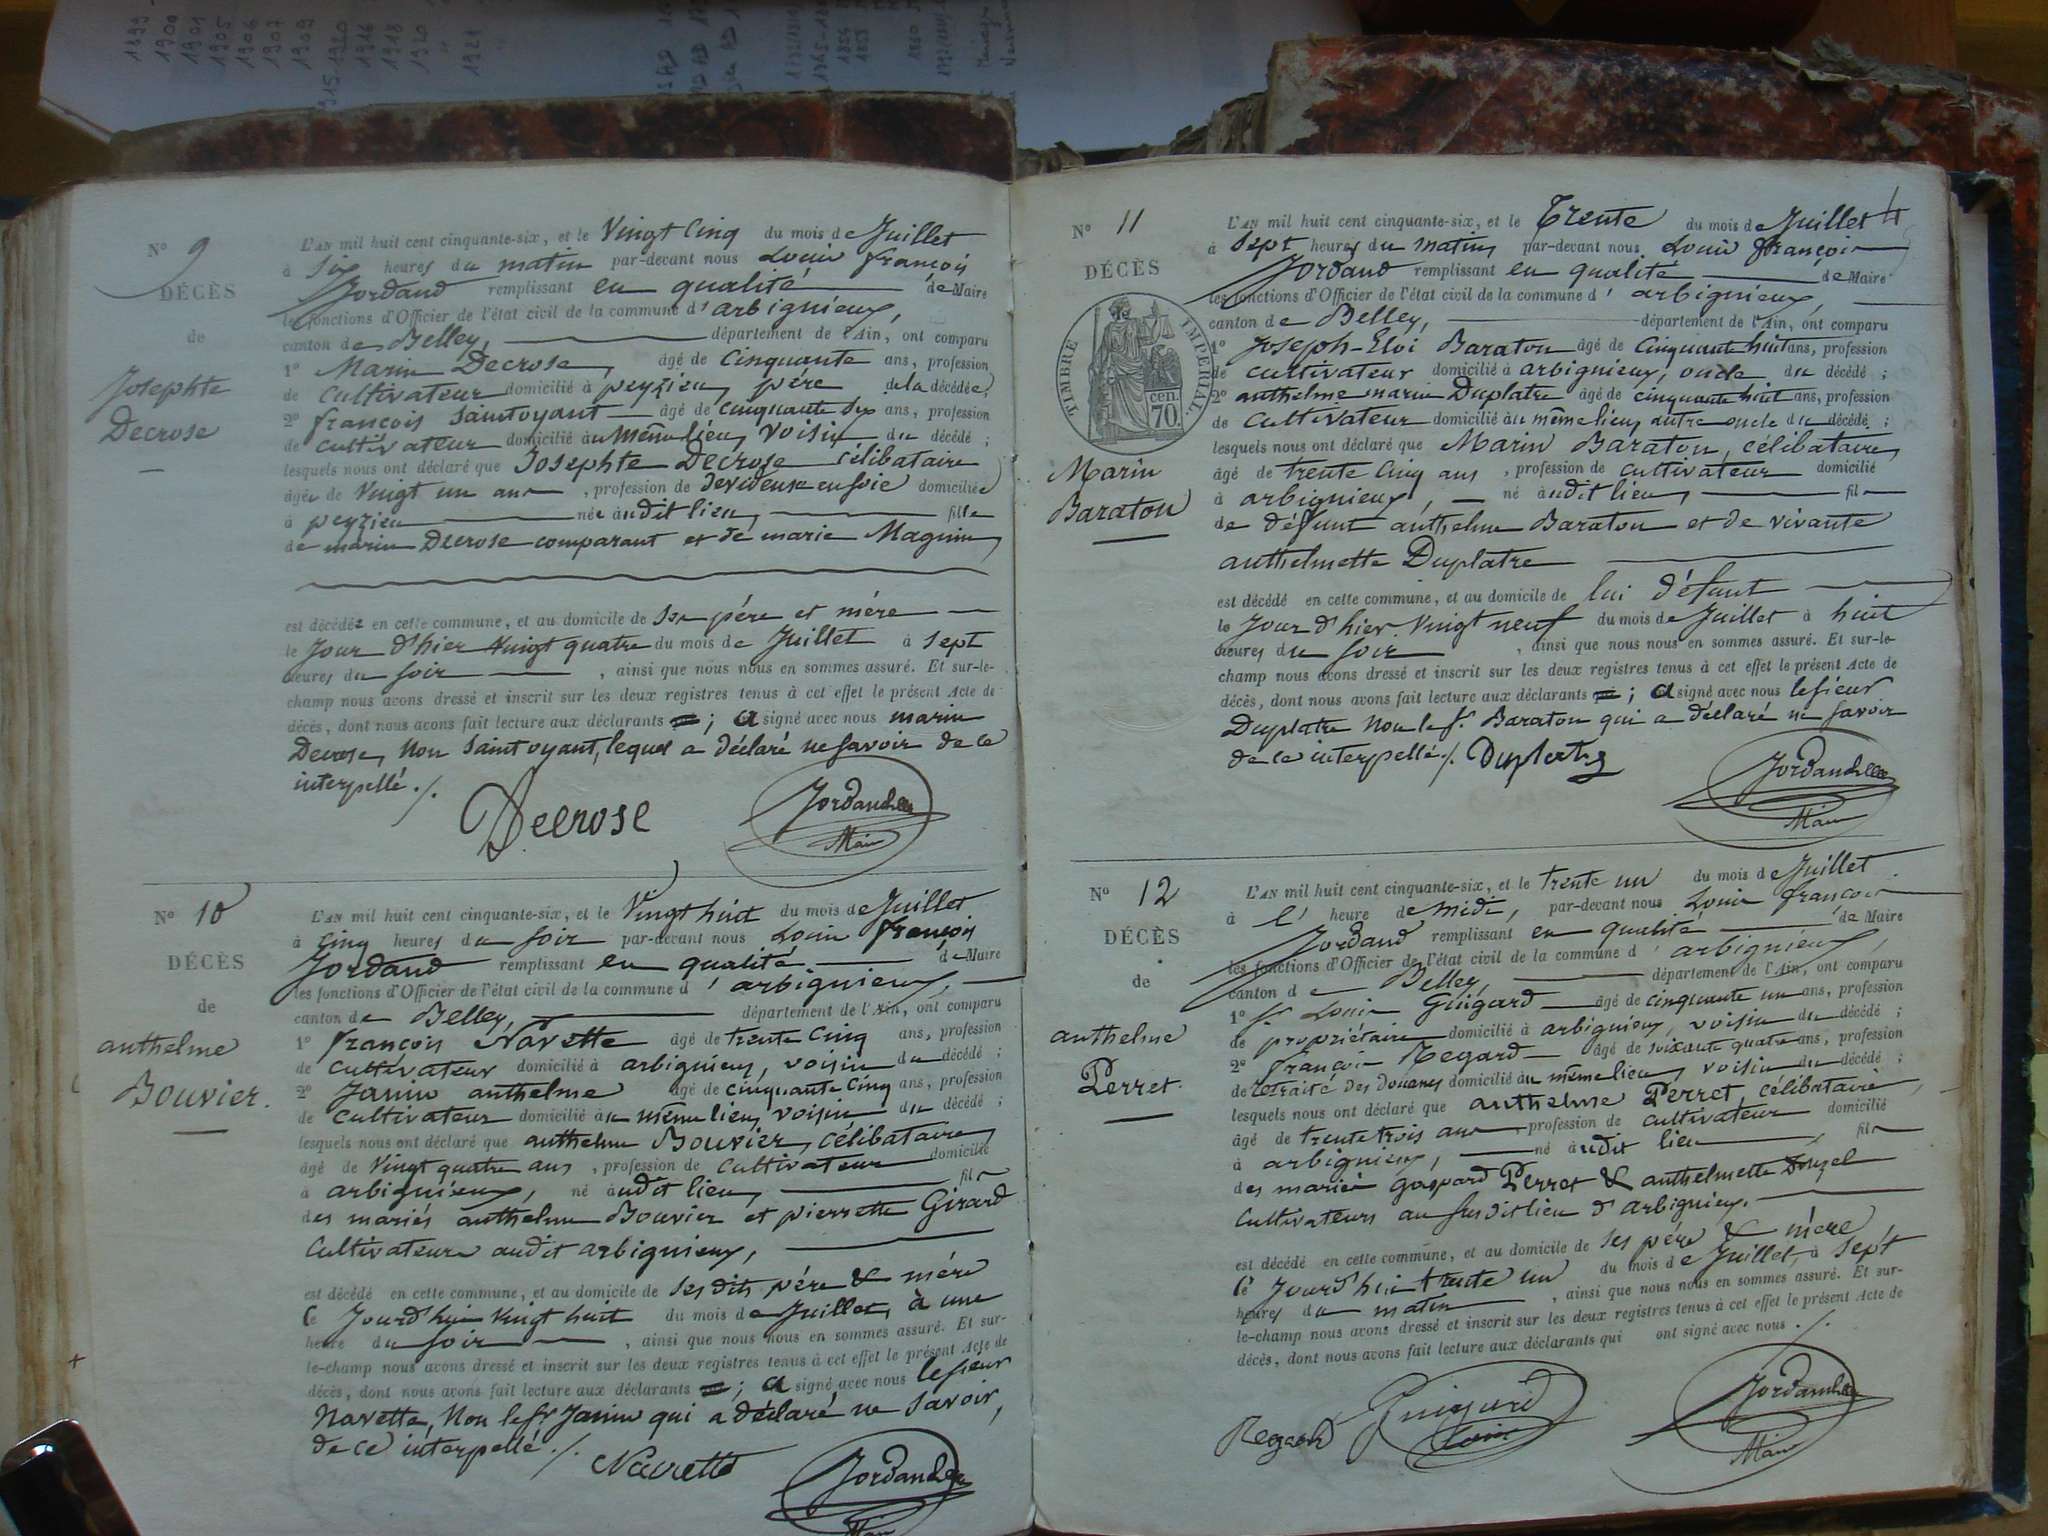 1899
1900
1901
1905
1906
1907
1909
1915 1920
1916
1918
1920
1921
N° 9
DÉCÈS
de
Josephte
Decrose
L'AN mil huit cent cinquante-six, et le Vingt Cinq du mois de Juillet
à Six heures du matin par-devant nous Louis françois
Jordand remplissant en qualité de Maire
les fonctions d'Officier de l'état civil de la commune d'arbignieux,
canton de Belley, département de l'Ain, ont comparu
1° Marin Decrose, âgé de Cinquante ans, profession
de Cultivateur domicilié à peyzieu, père de la décédée;
2° françois Saintoyant âgé de cinquante six ans, profession
de Cultivateur domicilié au même lieu, voisin du décédé ;
lesquels nous ont déclaré que Josephte Decrose célibataire
âgée de Vingt un ans, profession de devideuse en soie domiciliée
à peyzieu née audit lieu, fille
de marin Decrose comparant et de marie Magnin,
est décédée en cette commune, et au domicile de ses père et mère
le Jour d'hier Vingt quatre du mois de Juillet à Sept
heures du soir , ainsi que nous nous en sommes assuré. Et sur-le-
champ nous avons dressé et inscrit sur les deux registres tenus à cet effet le présent Acte de
décès, dont nous avons fait lecture aux déclarants ; a signé avec nous marin
Decrose, Non Saintoyant, lequel a déclaré ne savoir de ce
interpellé ./.
Decrose
Jordand
Maire
N° 10
DÉCÈS
de
anthelme
Bouvier.
L'AN mil huit cent cinquante-six, et le Vingt huit du mois de Juillet
à Cinq heures du soir par-devant nous Louis françois
Jordand remplissant en qualité de Maire
les fonctions d'Officier de l'état civil de la commune d'arbignieux,
canton de Belley, département de l'Ain, ont comparu
1° françois Navette âgé de trente Cinq ans, profession
de Cultivateur domicilié à arbignieux, voisin du décédé ;
2° Janin anthelme âgé de cinquante Cinq ans, profession
de Cultivateur domicilié au même lieu, voisin du décédé ;
lesquels nous ont déclaré que anthelme Bouvier, célibataire,
âgé de Vingt quatre ans, profession de Cultivateur domicilié
à arbignieux, né audit lieu, fils
des mariés anthelme Bouvier et pierrette Girard
Cultivateurs audit arbignieux,
est décédé en cette commune, et au domicile de ses dits père & mère
le Jourd'hui vingt huit du mois de Juillet, à une
heure du soir , ainsi que nous nous en sommes assuré. Et sur-
le-champ nous avons dressé et inscrit sur les deux registres tenus à cet effet le présent Acte de
décès, dont nous avons fait lecture aux déclarants ; a signé avec nous le sieur
Navette, Non le sr Janin qui a déclaré ne savoir,
de ce interpellé ./.
Navette
Jordand
Maire
N° 11
DÉCÈS
TIMBRE IMPÉRIAL.
cen.
70.
Marin
Baraton
4
L'AN mil huit cent cinquante-six, et le Trente du mois de Juillet
à Sept heures du matin, par-devant nous Louis françois
Jordand remplissant en qualité de Maire
les fonctions d'Officier de l'état civil de la commune d'arbignieux,
canton de Belley, département de l'Ain, ont comparu
1° Joseph-Eloi Baraton âgé de Cinquante huit ans, profession
de Cultivateur domicilié à arbignieux, oncle du décédé ;
2° anthelme marin Duplatre âgé de cinquante huit ans, profession
de Cultivateur domicilié au même lieu, autre oncle du décédé ;
lesquels nous ont déclaré que Marin Baraton, célibataire,
âgé de trente Cinq ans, profession de Cultivateur domicilié
à arbignieux, né audit lieu, fils
de défunt anthelme Baraton et de vivante
anthelmette Duplatre
est décédé en cette commune, et au domicile de lui défunt
le Jour d'hier Vingt neuf du mois de Juillet à huit
heures du soir , ainsi que nous nous en sommes assuré. Et sur-le-
champ nous avons dressé et inscrit sur les deux registres tenus à cet effet le présent Acte de
décès, dont nous avons fait lecture aux déclarants ; a signé avec nous le sieur
Duplatre Non le sr Baraton qui a déclaré ne savoir
de ce interpellé ./.
Jordand
Maire
N° 12
DÉCÈS
de
anthelme
Perret.
L'AN mil huit cent cinquante-six, et le trente un du mois de Juillet
à l' heure de Midi, par-devant nous Louis françois
Jordand remplissant en qualité de Maire
les fonctions d'Officier de l'état civil de la commune d'arbignieux,
canton de Belley, département de l'Ain, ont comparu
1° Sr Louis Guigard âgé de cinquante un ans, profession
de propriétaire domicilié à arbignieux, voisin du décédé ;
2° françois Regard âgé de soixante quatre ans, profession
de retraité des Douanes domicilié au même lieu, voisin du décédé ;
lesquels nous ont déclaré que anthelme Perret, célibataire,
âgé de trente trois ans, profession de cultivateur domicilié
à arbignieux, né audit lieu, fils
des mariés gaspard Perret & anthelmette
Cultivateurs au susdit lieu d'arbignieux.
est décédé en cette commune, et au domicile de ses père & mère,
le Jourd'hui trente un du mois de Juillet, à sept
heures du matin , ainsi que nous nous en sommes assuré. Et sur-
le-champ nous avons dressé et inscrit sur les deux registres tenus à cet effet le présent Acte de
décès, dont nous avons fait lecture aux déclarants qui ont signé avec nous ./.
Regard
Guigard
Louis
Jordand
Maire